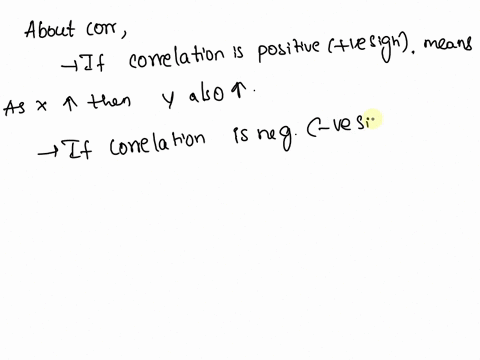 About corr,
→ If correlation is positive (+ve sign). means
As x ↑ then y also ↑.
→ If correlation is neg. (-ve si